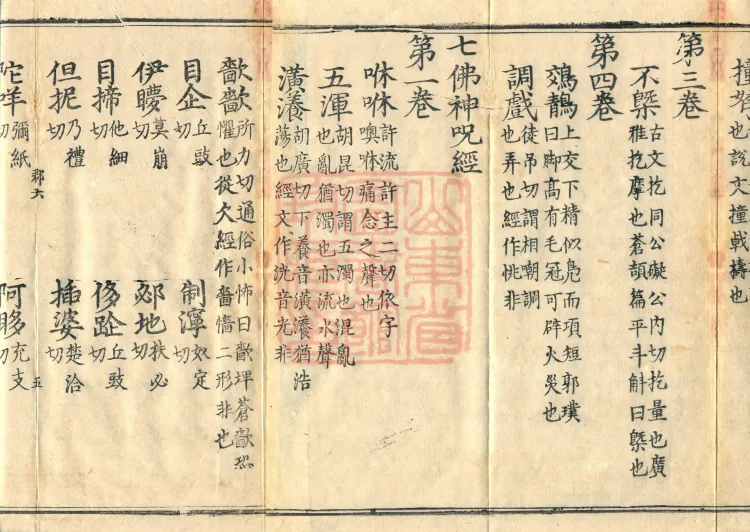 撞戟擣也
第三卷
不槩古文扢同公礙公內切扢量也廣
雅扢摩也蒼頡篇平斗斛曰槩也
第四卷
鵁鶄上交下精似鳧而項短郭璞
曰脚高有毛冠可辟火災也
調戲徒吊切謂相嘲調
也弄也經作恌非
七佛神呪經
第一卷
咻咻許流許主二切依字
噢咻痛念之聲也
五渾胡昆切謂五濁也混亂
也亂猶濁也亦流水聲
潢瀁胡廣切下養音潢瀁猶浩
蕩也經文作洸音光非
歡歡所力切通俗小怖曰歡埤蒼歡恐
懼也從欠經作嗇懎二形非也
目企丘豉切 制濘奴定切
伊矇莫崩切 邲地扶必切
目揥他細切 侈䟚丘豉切
但抳乃禮切 插婆楚洽切
陀咩彌紙切 阿眵充支切
五